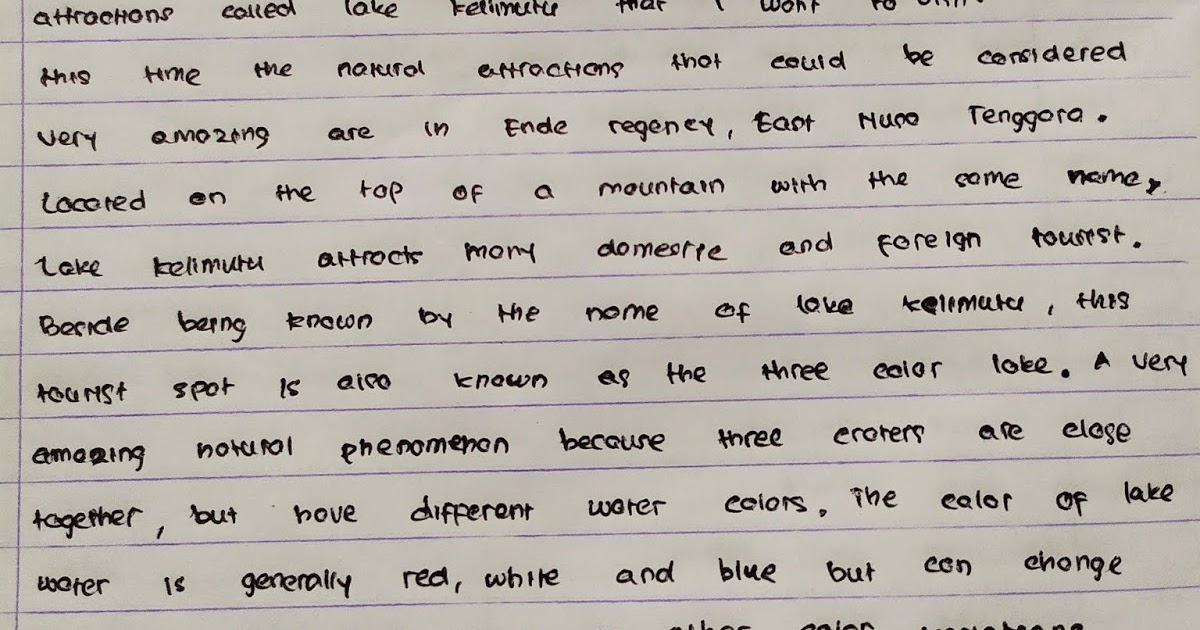 attractions called lake kelimutu that I want to
this time the natural attractions that could be considered
very amazing are in Ende regency, East Nusa Tenggara.
Located on the top of a mountain with the same name,
lake kelimutu attracts many domestic and foreign tourist.
Beside being known by the name of lake kelimutu, this
tourist spot is also known as the three color lake. A very
amazing natural phenomenon because three craters are close
together, but have different water colors. The color of lake
water is generally red, white and blue but can change
other color